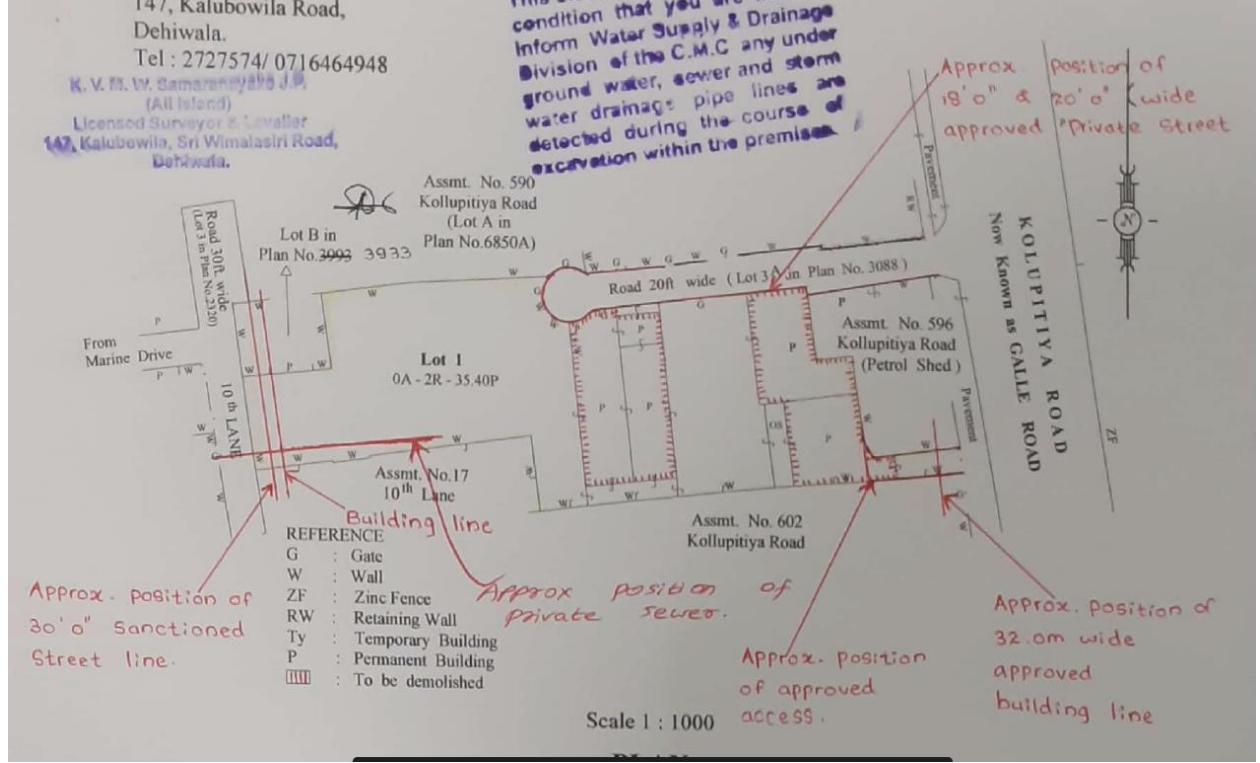 147, Kalubowila Road,
Dehiwala.
Tel : 2727574/ 0716464948
K. V. M. W. Samaranayake J.P.
(All Island)
Licensed Surveyor & Levaller
147, Kalubowila, Sri Wimalasiri Road,
Dehiwala.
condition that you are
Inform Water Supply & Drainage
Division of the C.M.C any under
ground water, sewer and storm
water drainage pipe lines are
detected during the course of
excavation within the premises
Approx position of
18'0" & 20'0" wide
approved "Private Street
Assmt. No. 590
Kollupitiya Road
(Lot A in
Plan No.6850A)
Lot B in
Plan No.3993 3933
Road 30ft. wide
(Lot 3 in Plan No.2320)
From
Marine Drive
10 th LANE
Road 20ft wide ( Lot 3A in Plan No. 3088 )
Lot 1
0A - 2R - 35.40P
Assmt. No. 596
Kollupitiya Road
(Petrol Shed )
Pavement
RW
N
KOLUPITIYA ROAD
Now Known as GALLE ROAD
Pavement
ZF
OS
Assmt. No.17
10th Lane
Building line
Assmt. No. 602
Kollupitiya Road
REFERENCE
G : Gate
W : Wall
ZF : Zinc Fence
RW : Retaining Wall
Ty : Temporary Building
P : Permanent Building
: To be demolished
Approx. position of
30'0" Sanctioned
Street line.
Approx position of
private sewer.
Approx. position
of approved
access.
Approx. position of
32.0m wide
approved
building line
Scale 1 : 1000